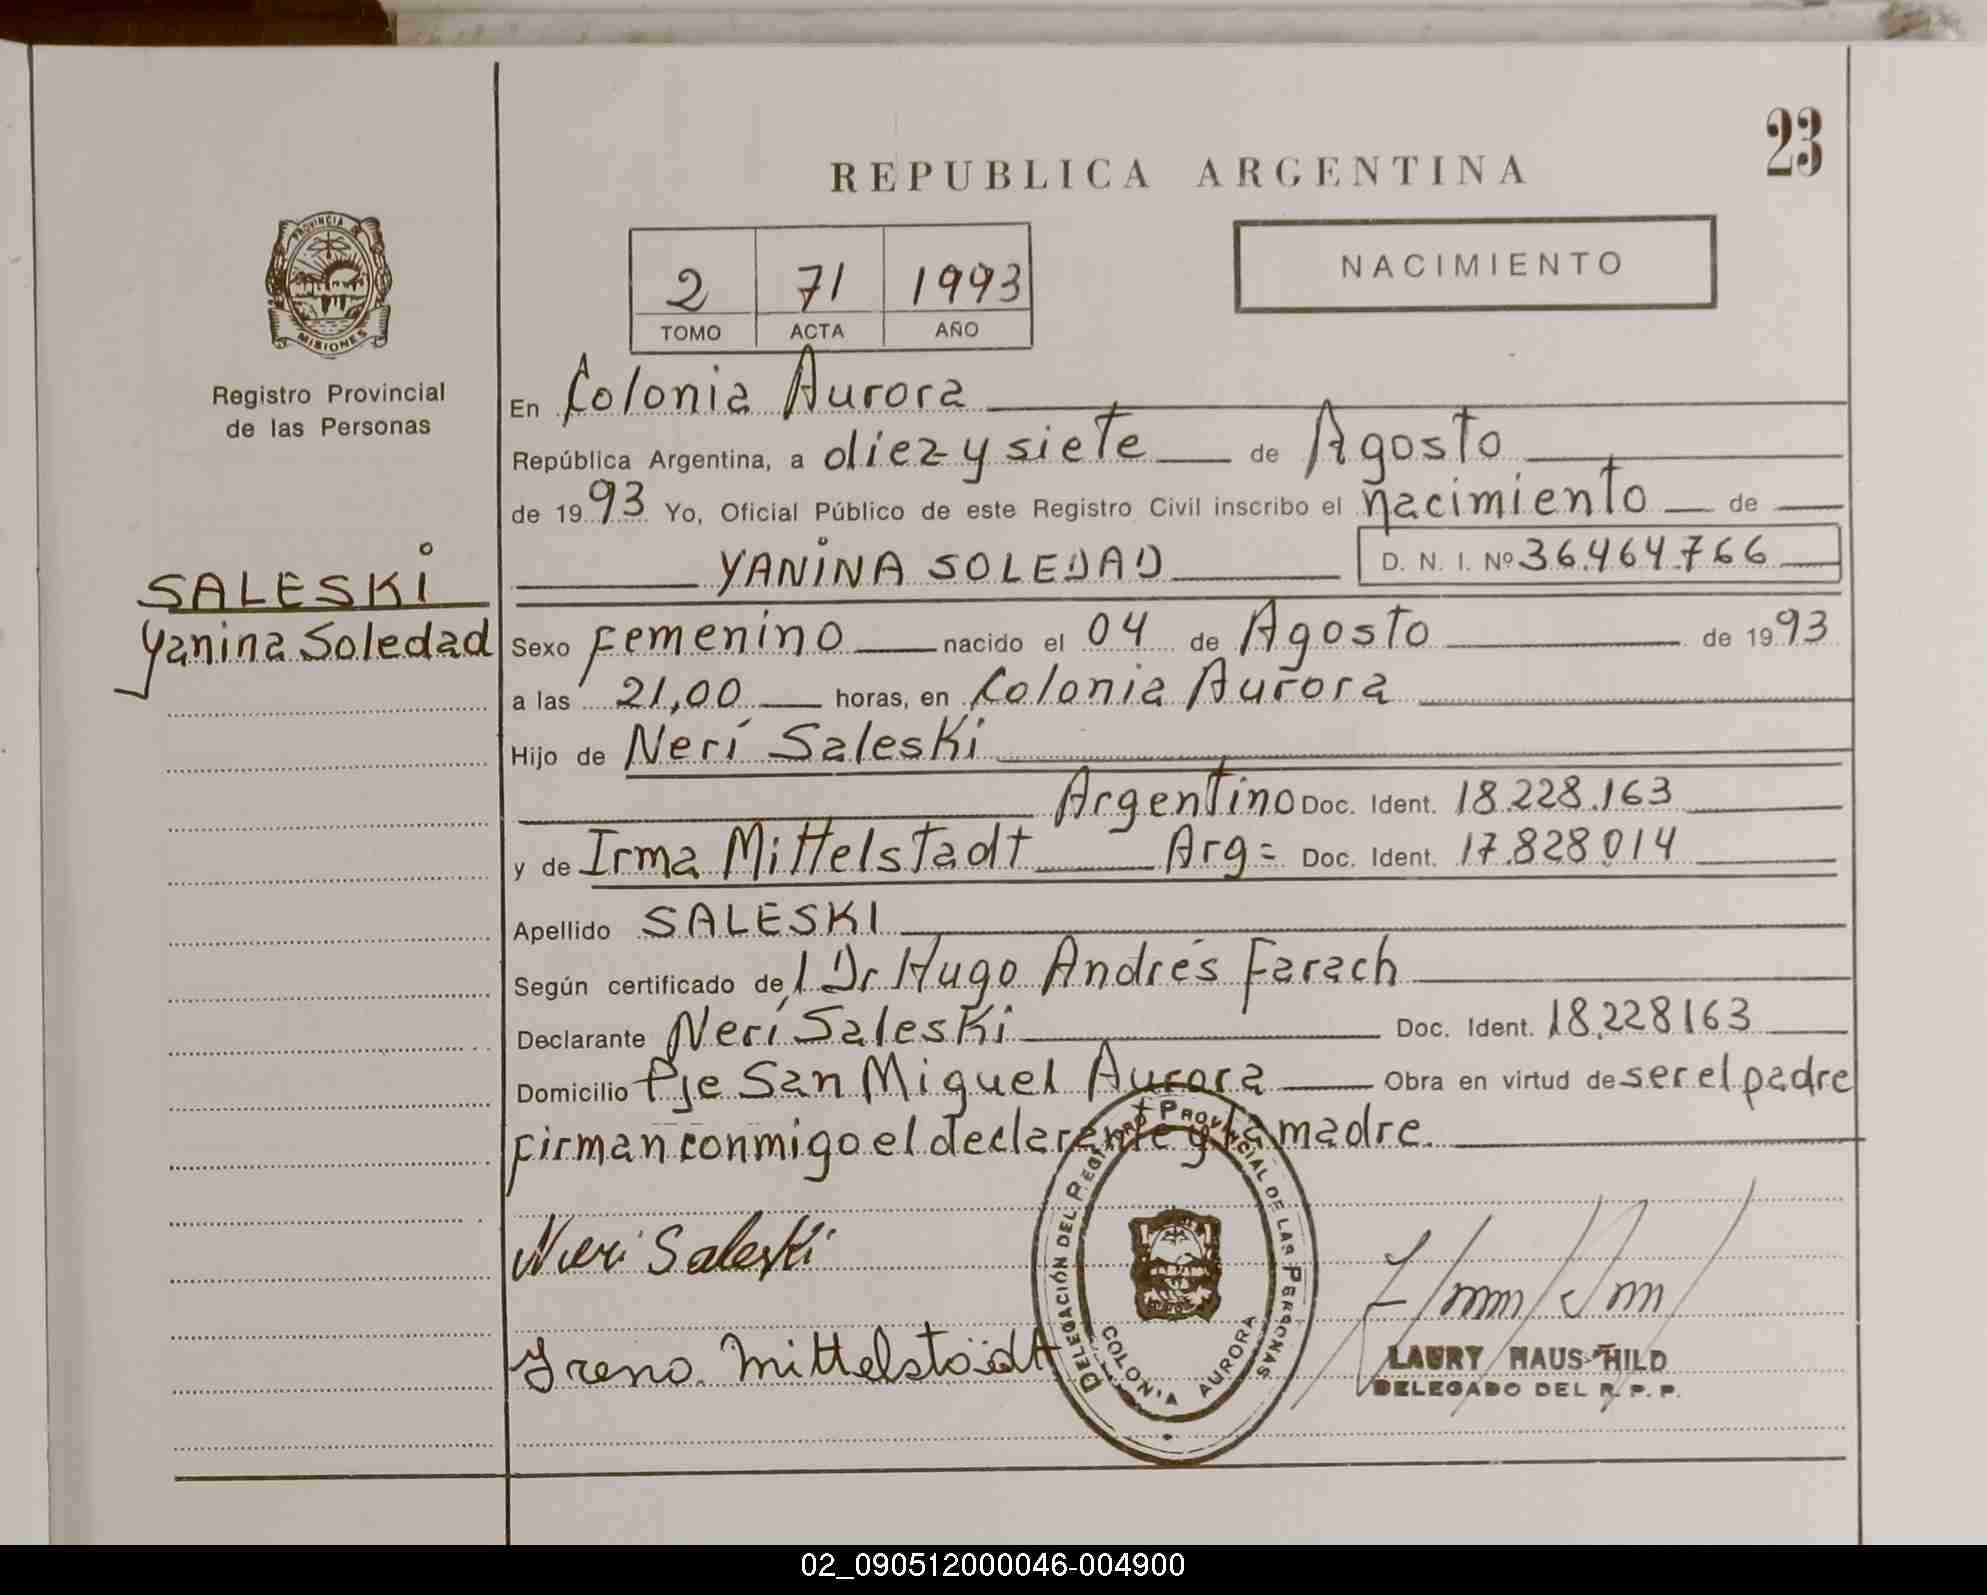 23
REPUBLICA ARGENTINA
NACIMIENTO
2 71 1993
TOMO ACTA AÑO
PROVINCIA DE
MISIONES
Registro Provincial
de las Personas
SALESKI
Yanina Soledad
En Colonia Aurora
República Argentina, a diez y siete de Agosto
de 1993 Yo, Oficial Público de este Registro Civil inscribo el nacimiento de
YANINA SOLEDAD D. N. I. Nº 36.464.766
Sexo Femenino nacido el 04 de Agosto de 1993
a las 21,00 horas, en Colonia Aurora
Hijo de Neri Saleski
Argentino Doc. Ident. 18.228.163
y de Irma Mittelstadt Arg= Doc. Ident. 17.828.014
Apellido SALESKI
Según certificado de l Dr Hugo Andrés Farach
Declarante Neri Saleski Doc. Ident. 18.228163
Domicilio Pje San Miguel Aurora Obra en virtud de ser el padre
Firman conmigo el declarante y la madre.
Neri Saleski
Mittelstadt
DELEGACIÓN DEL REGISTRO PROVINCIAL DE LAS PERSONAS
COLONIA AURORA
LAURY HAUSTHILD
DELEGADO DEL R. P. P.
02_090512000046-004900